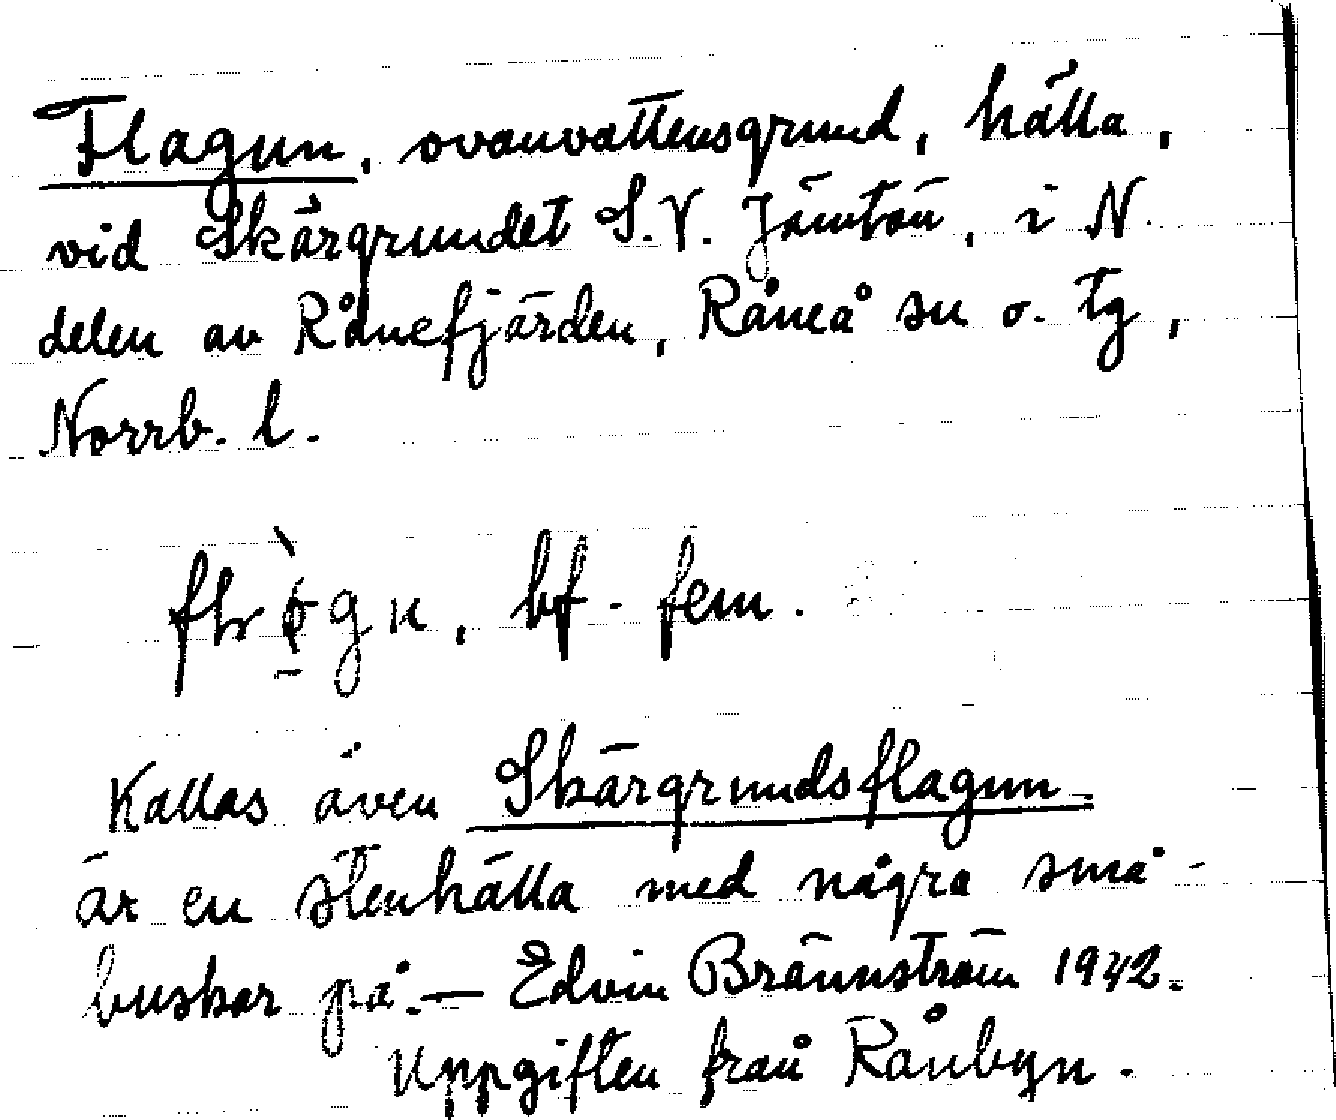 Flagun, ovanvattensgrund, hälla,
vid Skärgrundet S.V. Jämtön, i N.
delen av Rånefjärden, Råneå sn o. tg,
Norrb. l.
bf. fem.
Kallas även Skärgrundsflagun.
är en stenhälla med några små-
buskar på. — Edvin Brännström 1942.
Uppgiften från Rånbyn.